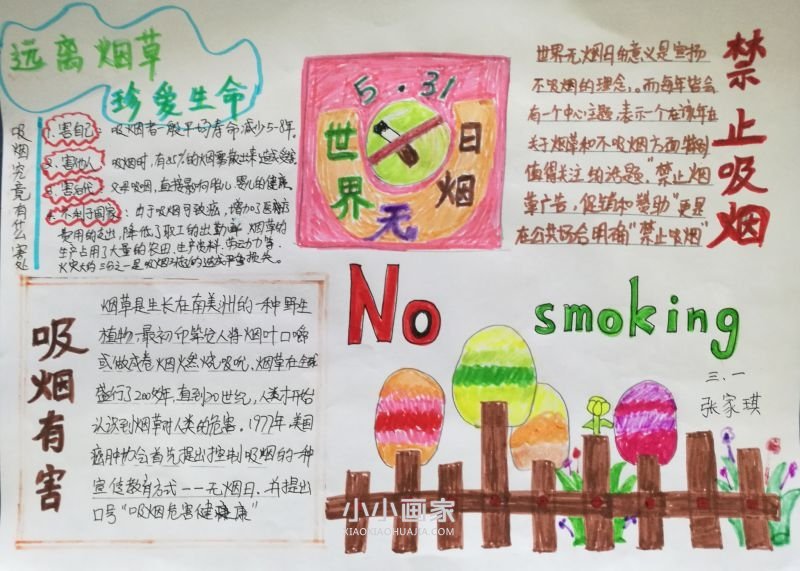 远离烟草
珍爱生命
吸烟究竟有什么害处
1. 害自己: 吸烟者一般平均寿命减少5-8年.
2. 害他人 吸烟时,有
3. 害后代 父母吸烟,直接影响胎儿、婴儿的健康
4. 不利于国家: 由于吸烟可致癌,增加了医疗
费用的支出,降低了职工的出勤率.烟草的
生产占用了大量的农田,生产资料,劳动力等.
火灾大约三分之一是吸烟引起的
5·31
世界无烟日
世界无烟日的意义是宣扬
不吸烟的理念。而每年皆会
有一个中心主题,表示一个在该年在
关于烟草和不吸烟方面特别
值得关注的话题"禁止烟
草广告,促销和赞助"更是
在公共场合明确"禁止吸烟"
禁止吸烟
吸烟有害
烟草是生长在南美洲的一种野生
植物,最初印第安人将烟叶口嚼
或做成卷烟燃烧吸吮,烟草在全球
盛行了200多年,直到20世纪,人类才开始
认识到烟草对人类的危害,1977年,美国
癌肿协会首先提出控制吸烟的一种
宣传教育方式——无烟日.并提出
口号"吸烟危害健康"
No smoking
三.一
张家琪
小小画家
XIAOXIAOHUAJIA.COM